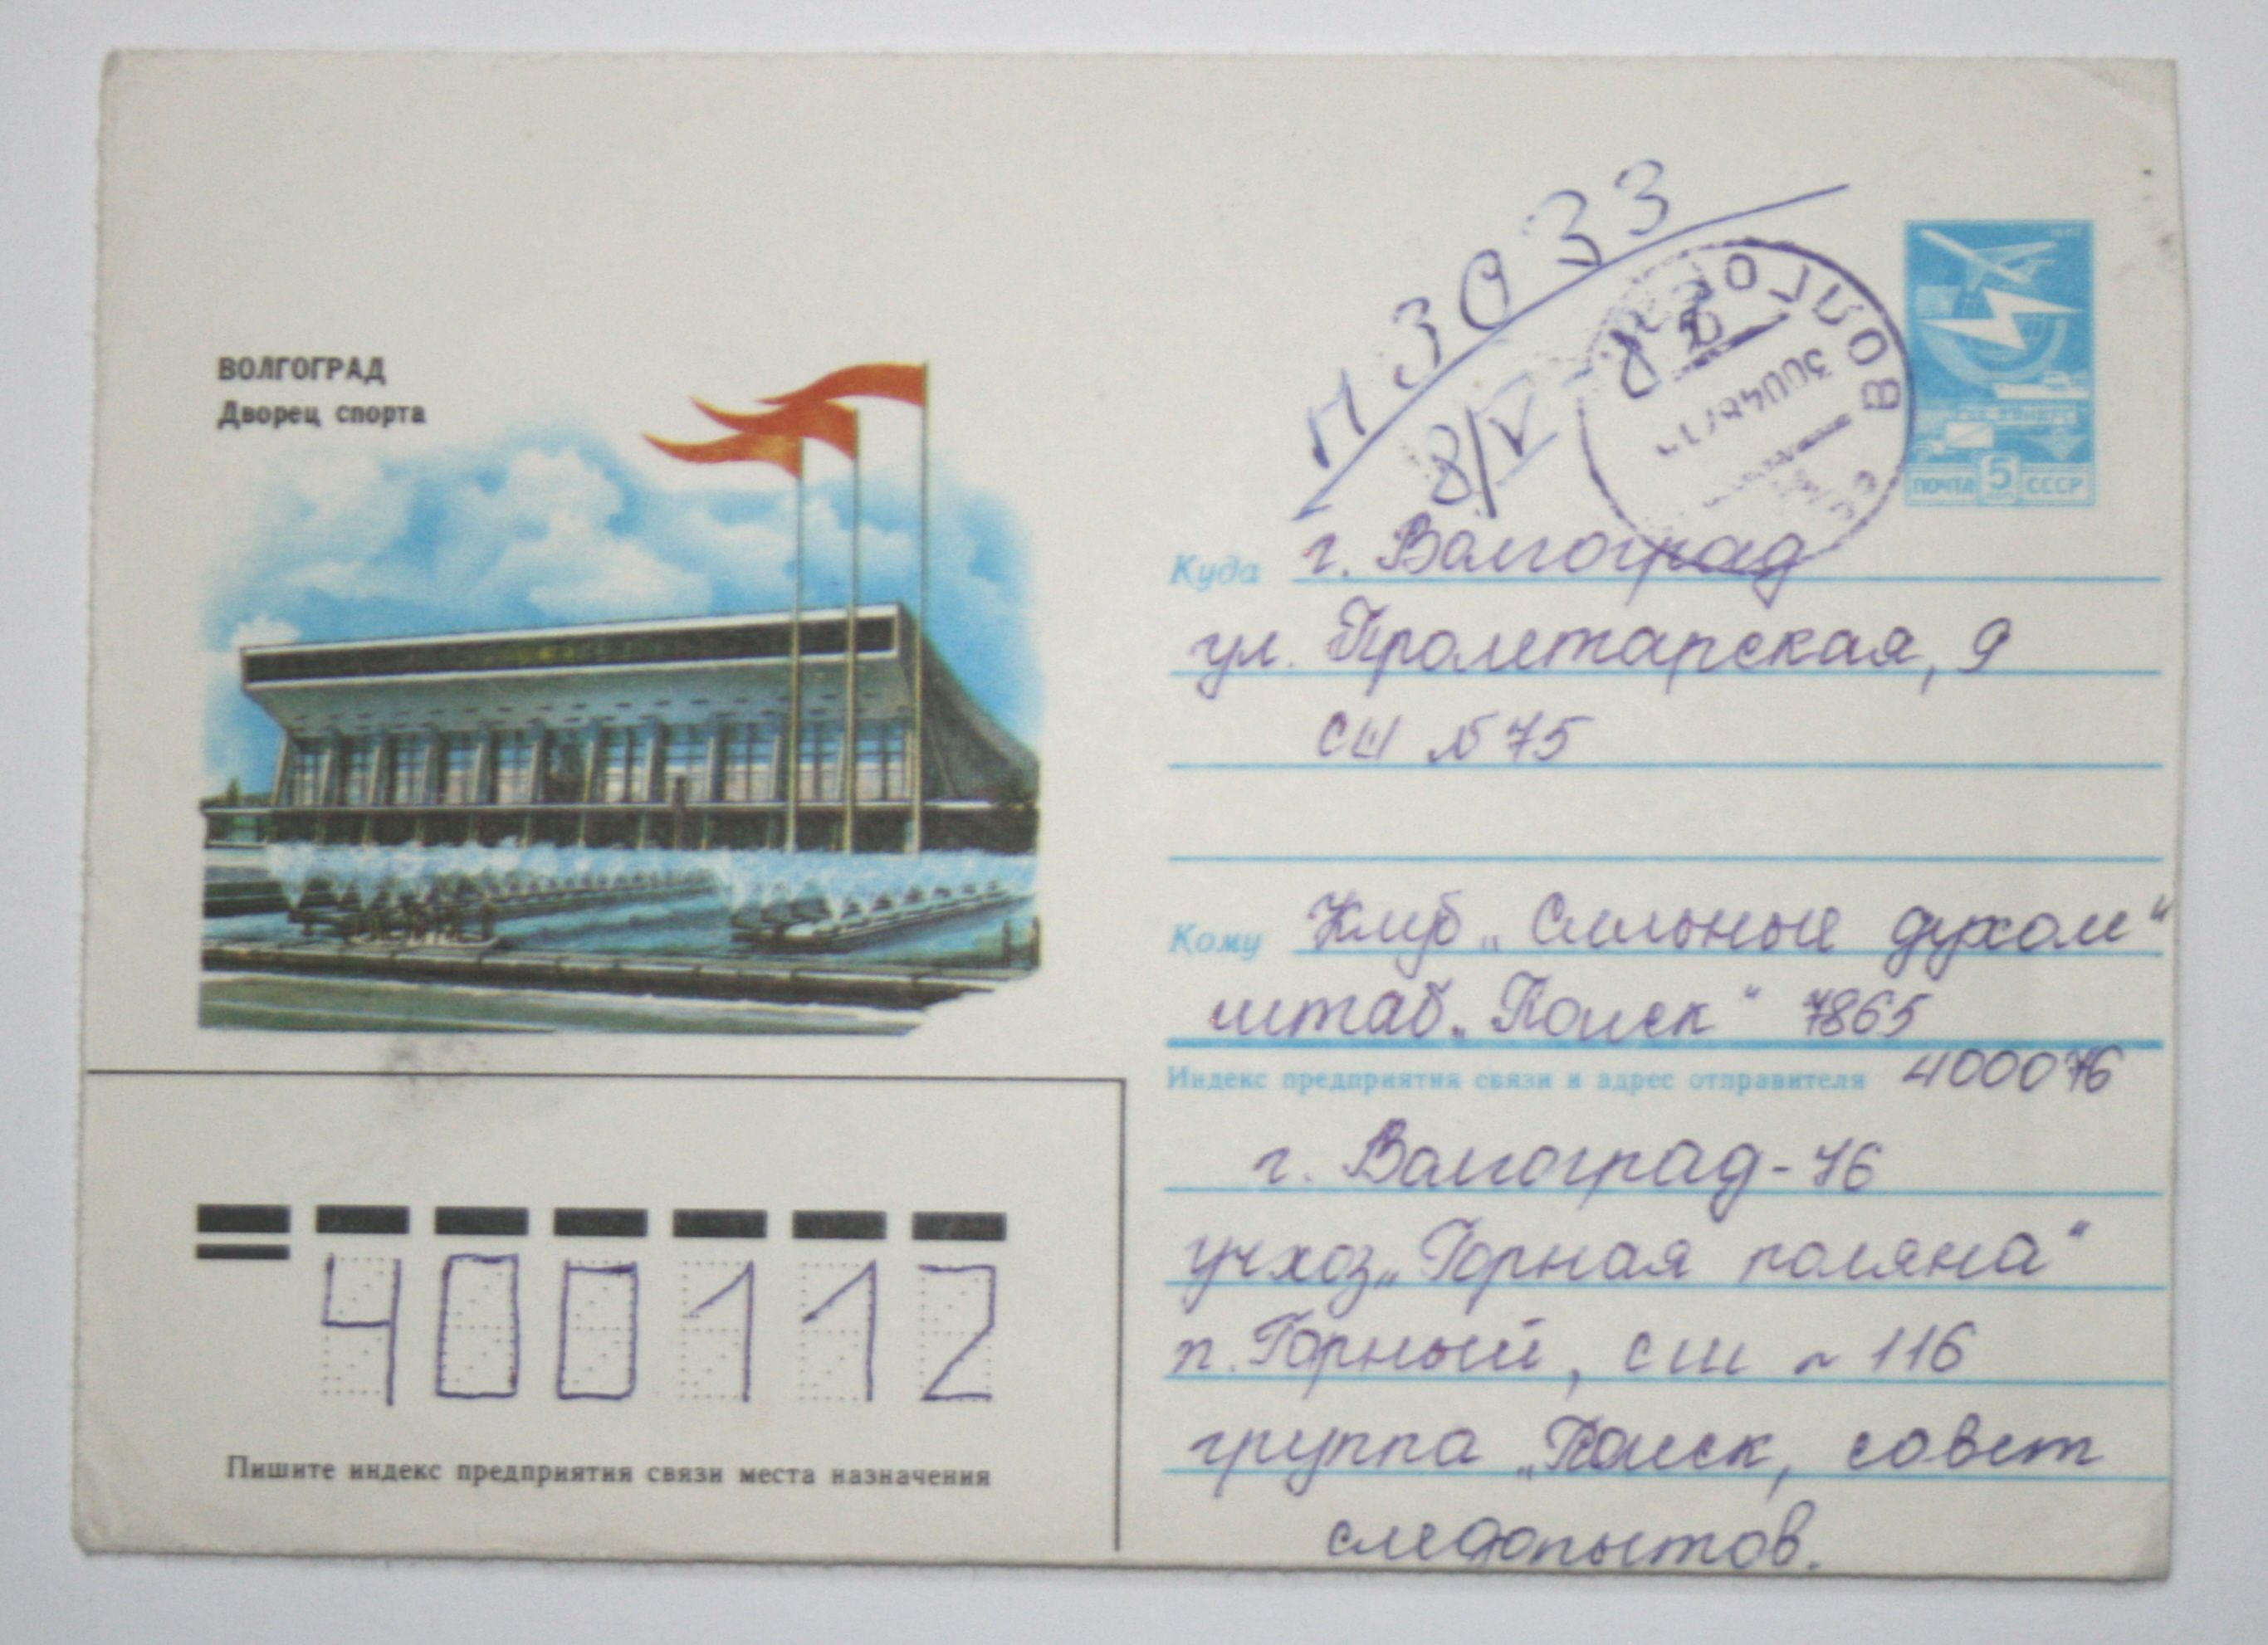 ВОЛГОГРАД
Дворец спорта
н3033
8/V
ВОЛГОГРАД
300487
ПОЧТА 5 СССР
Куда г. Волгоград
ул. Пролетарская, 9
СШ №75
Кому Клуб „Сильные духом“
штаб „Поиск“ 7865
Индекс предприятия связи и адрес отправителя 400076
г. Волгоград-76
учхоз „Горная поляна“
п. Горный, сш ~ 116
группа „Поиск, совет
следопытов.
400112
Пишите индекс предприятия связи места назначения